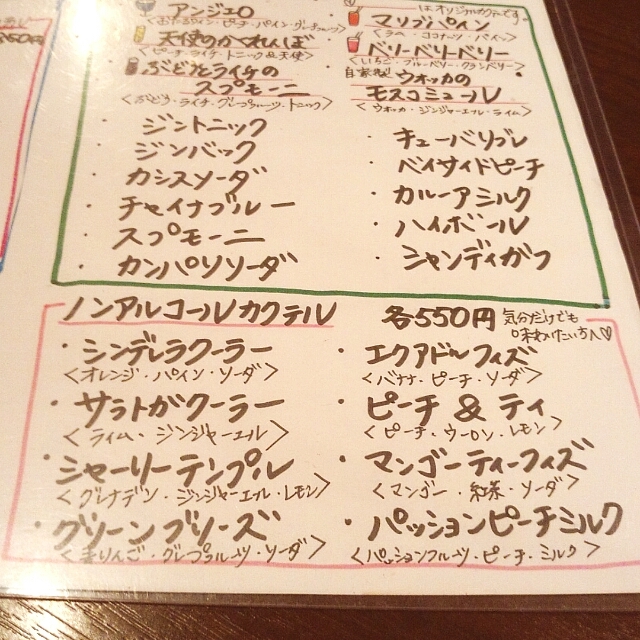 はオリジナルカクテルです。
アンジェロ
天使のかくれんぼ
<ピーチ・ライチ・トニック&天使>
ぶどうとライチの
スプモーニ
<ぶどう・ライチ・グレープフルーツ・トニック>
・ジントニック
・ジンバック
・カシスソーダ
・チャイナブルー
・スプモーニ
・カンパリソーダ
マリブパイン
<ラム・ココナッツ・パイン>
ベリーベリーベリー
<いちご・ブルーベリー・クランベリー>
自家製 ウォッカの
モスコミュール
<ウォッカ・ジンジャーエール・ライム>
・キューバリブレ
・ベイサイドピーチ
・カルーアミルク
・ハイボール
・シャンディガフ
ノンアルコールカクテル 各550円 気分だけでも
味わいたい方へ♡
・シンデレラクーラー
<オレンジ・パイン・ソーダ>
・サラトガクーラー
<ライム・ジンジャーエール>
・シャーリーテンプル
<グレナデン・ジンジャーエール・レモン>
・グリーンブリーズ
<青りんご・グレープフルーツ・ソーダ>
・エクアドルフィズ
<バナナ・ピーチ・ソーダ>
・ピーチ & ティ
<ピーチ・ウーロン・レモン>
・マンゴーティーフィズ
<マンゴー・紅茶・ソーダ>
・パッションピーチミルク
<パッションフルーツ・ピーチ・ミルク>